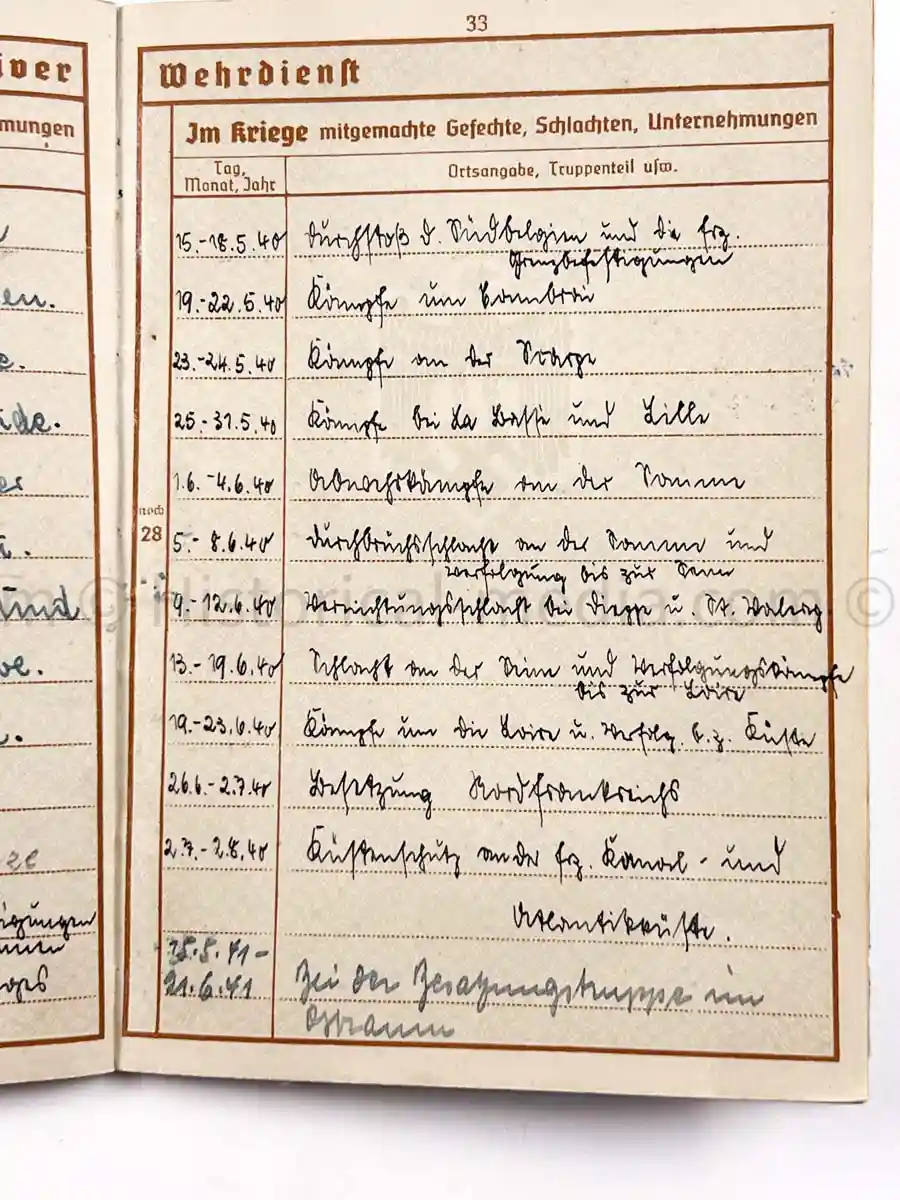 33
iver
Wehrdienst
mungen
Im Kriege mitgemachte Gefechte, Schlachten, Unternehmungen
Tag,
Monat, Jahr
Ortsangabe, Truppenteil usw.
15.-18.5.40 Durchstoß d. Südbelgien und die frz.
Grenzbefestigungen
en.
19.-22.5.40 Kämpfe um Cambrai
23.-24.5.40 Kämpfe an der Scarpe
25.-31.5.40 Kämpfe bei La Basse und Lille
1.6.-4.6.40 Abwehrkämpfe an der Somme
noch
28
5.-8.6.40 Durchbruchsschlacht an der Somme und
Verfolgung bis zur Seine
9.-12.6.40 Vernichtungsschlacht bei Dieppe u. St. Valery
und
13.-19.6.40 Schlacht an der Seine und Verfolgungskämpfe
bis zur Loire
19.-23.6.40 Kämpfe um die Loire u. Verfolg. b. z. Küste
26.6.-2.7.40 Besetzung Nordfrankreichs
2.7.-2.8.40 Küstenschutz an der frz. Kanal- und
Atlantikküste.
igungen
25.5.41-
21.6.41 Bei der Besatzungstruppe im
Ostraum
Historicalmedia.com ©